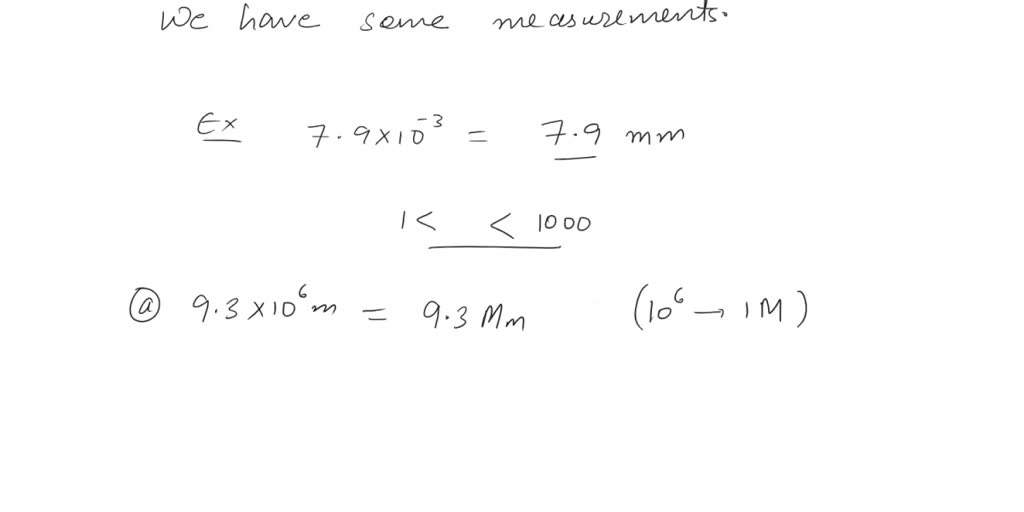 We have some measurements.
Ex 7.9×10⁻³ = 7.9 mm
1 < < 1000
ⓐ 9.3×10⁶m = 9.3 Mm (10⁶ → 1M)